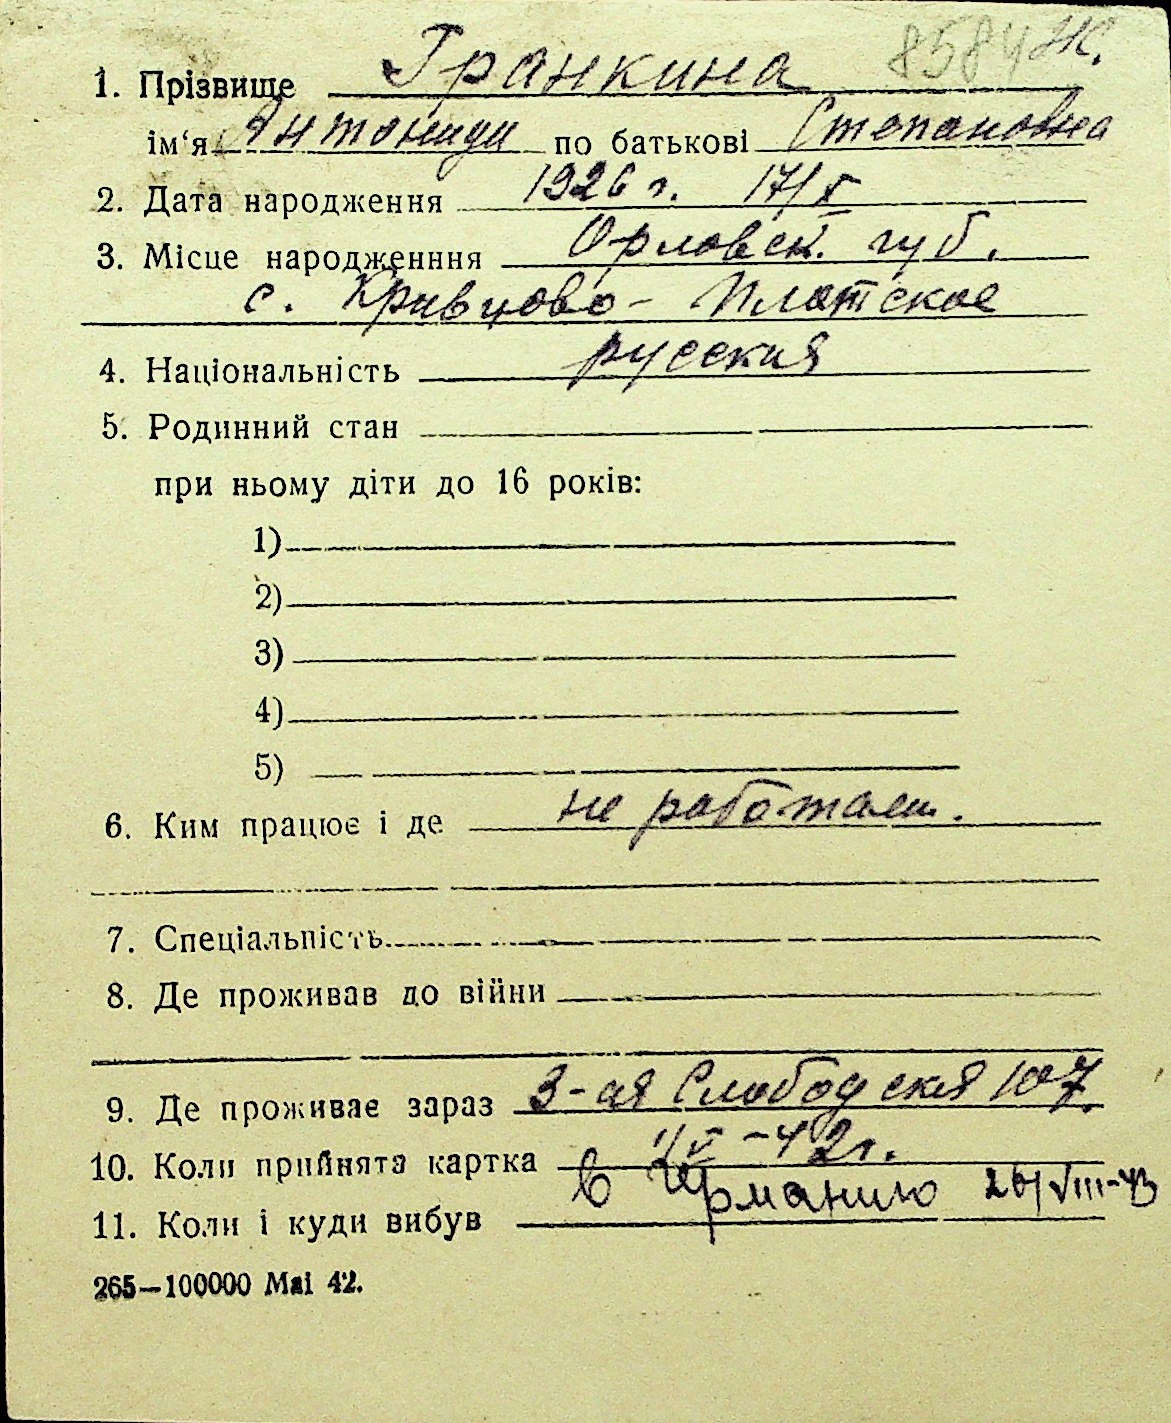 8584 Ж.
1. Прізвище Гранкина
ім‘я Антонида по батькові Степановна
2. Дата народження 1926 г. 17/X
3. Місце народженння Орловск. губ.
с. Кривцово-Платское
4. Національність русская
5. Родинний стан
при ньому діти до 16 років:
1)
2)
3)
4)
5)
6. Ким працює і де не работает.
7. Спеціальність
8. Де проживав до війни
9. Де проживає зараз 3-ая Слободская 107.
10. Коли прийнята картка V-42г.
11. Коли і куди вибув в Германию 26/VIII-43
265—100000 Маі 42.